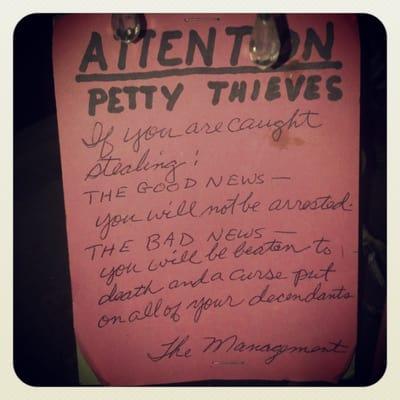 ATTENTION
PETTY THIEVES
If you are caught
stealing:
THE GOOD NEWS —
you will not be arrested.
THE BAD NEWS —
you will be beaten to
death and a curse put
on all of your decendants
The Management